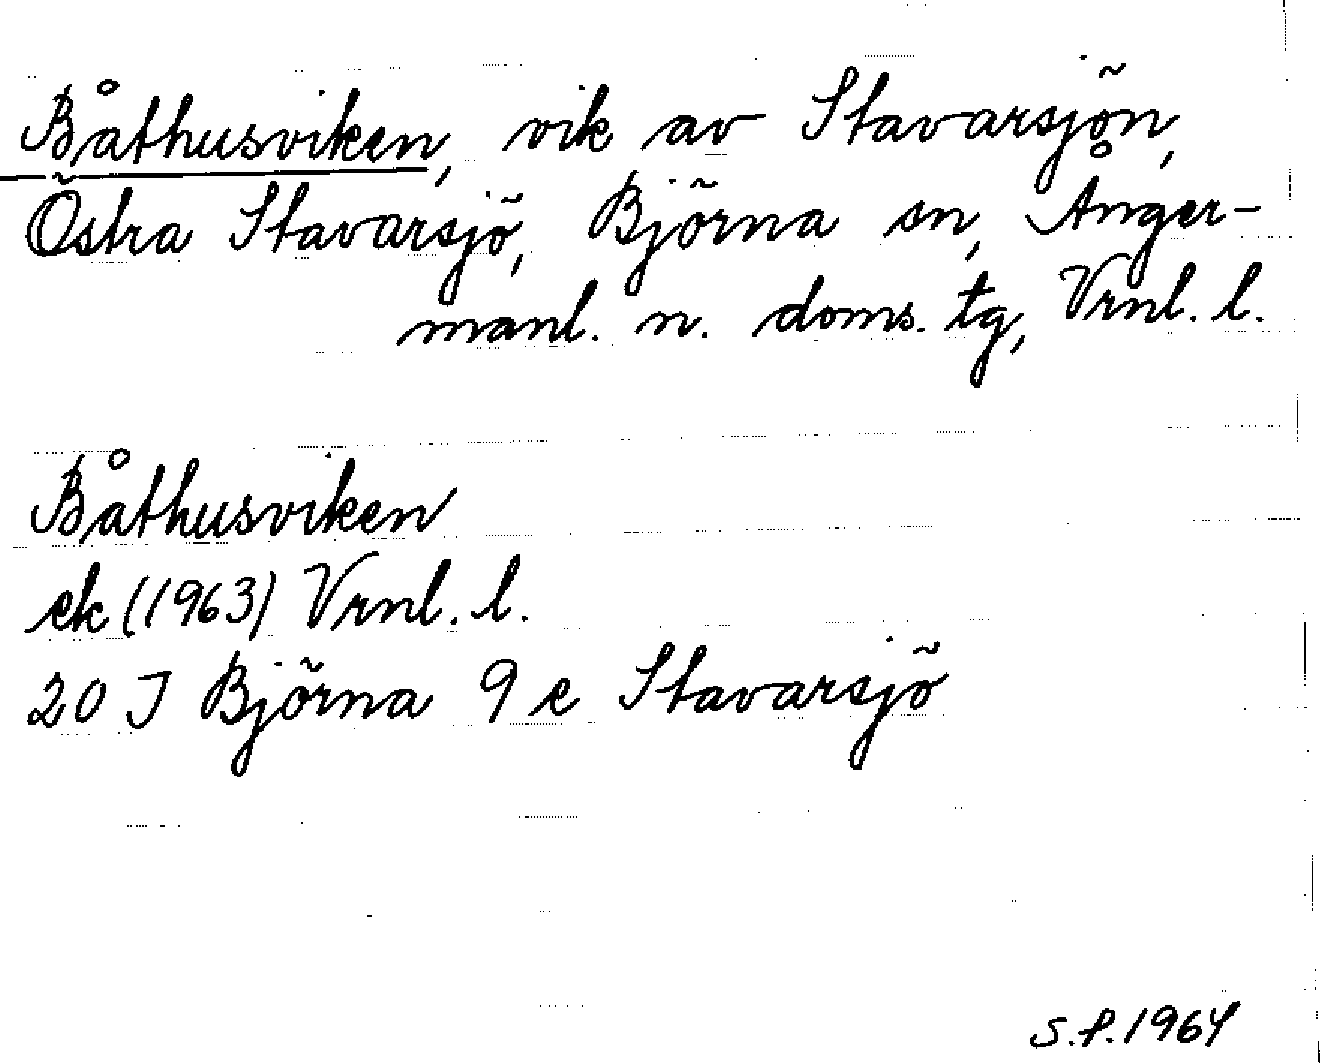 Båthusviken, vik av Stavarsjön,
Östra Stavarsjö, Björna sn, Ånger-
manl. n. doms. tg, Vrnl. l.
Båthusviken
ek (1963) Vrnl. l.
20 J Björna 9 e Stavarsjö
S.P. 1964